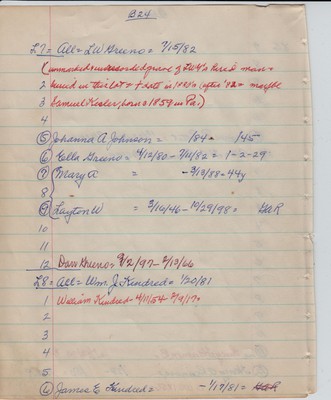 B24
L7 = All = L.W. Gruno = 7/15/82
(unmarked + unrecorded grave of LW G's hired man =
2 buried in this lot + + date in 1880's (after '82 = maybe
3 Samuel Kesler, born @ 1859 in Pa.)
4
5 Johanna A Johnson = /84 = /45
6 Ella Gruno = 4/12/80 - 7/11/82 = 1-2-29
7 Mary A = - 3/13/88 = 44y
8
9 Layton W = 3/16/46 - 10/29/98 = GAR
10
11
12 Dan Gruno = 9/2/97 - 2/13/66
L8 = All = Wm. J. Kindred = 1/20/81
1 William Kindred = 4/11/54 - 2/9/17
2
3
4
5
6 James E. Kindred = - 1/17/81 = GAR